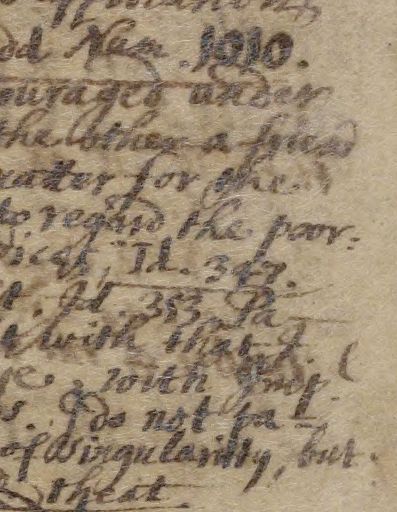 dd Num. 1010.
ouraged under
the other a friend
matter for the
to regard the poor.
Id. 347.
t. Id. 353. Pa
t with that
with
s. I do not pa
of singularitty, but
theat